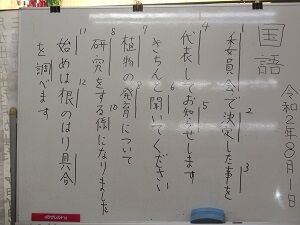 国語
令和2年8月1日
委員会で決定した事を
代表してお知らせします
きちんと聞いてください
植物の発育について
研究をする様になりました
始めは根のはり具合
を調べます
1
2
3
4
5
6
7
8
9
10
11
12